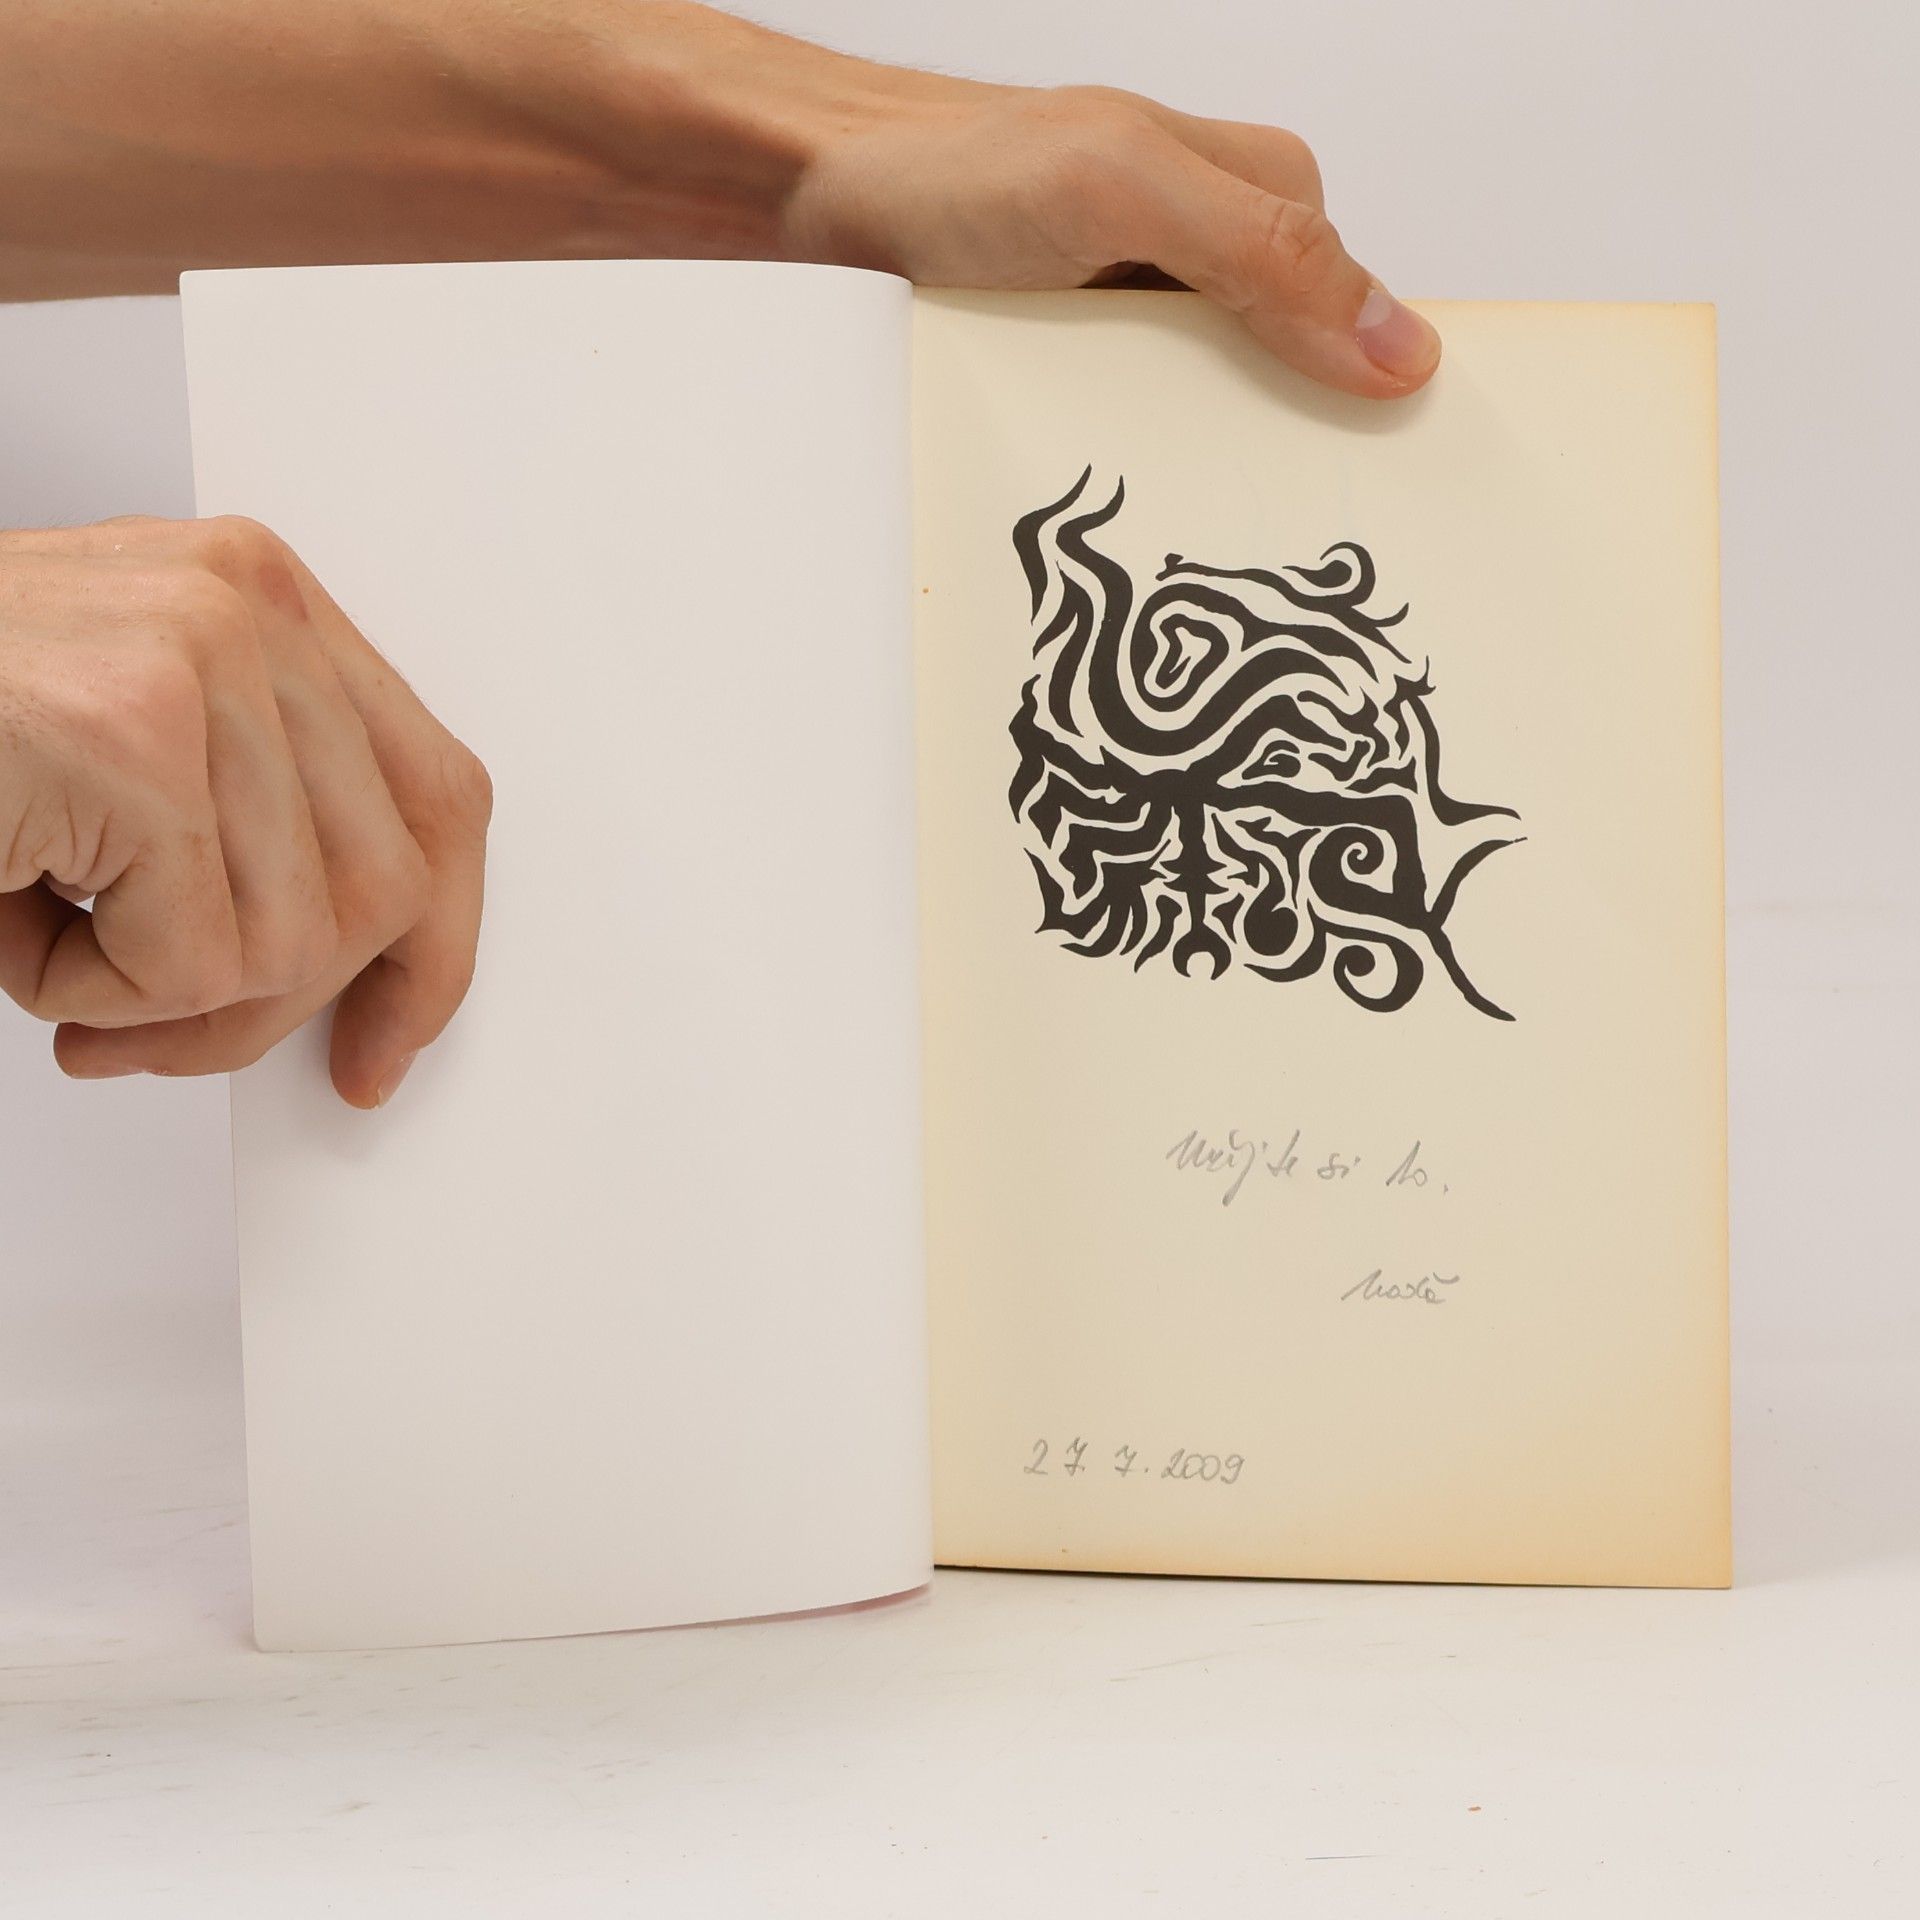 Užijte si to.
27. 7. 2009